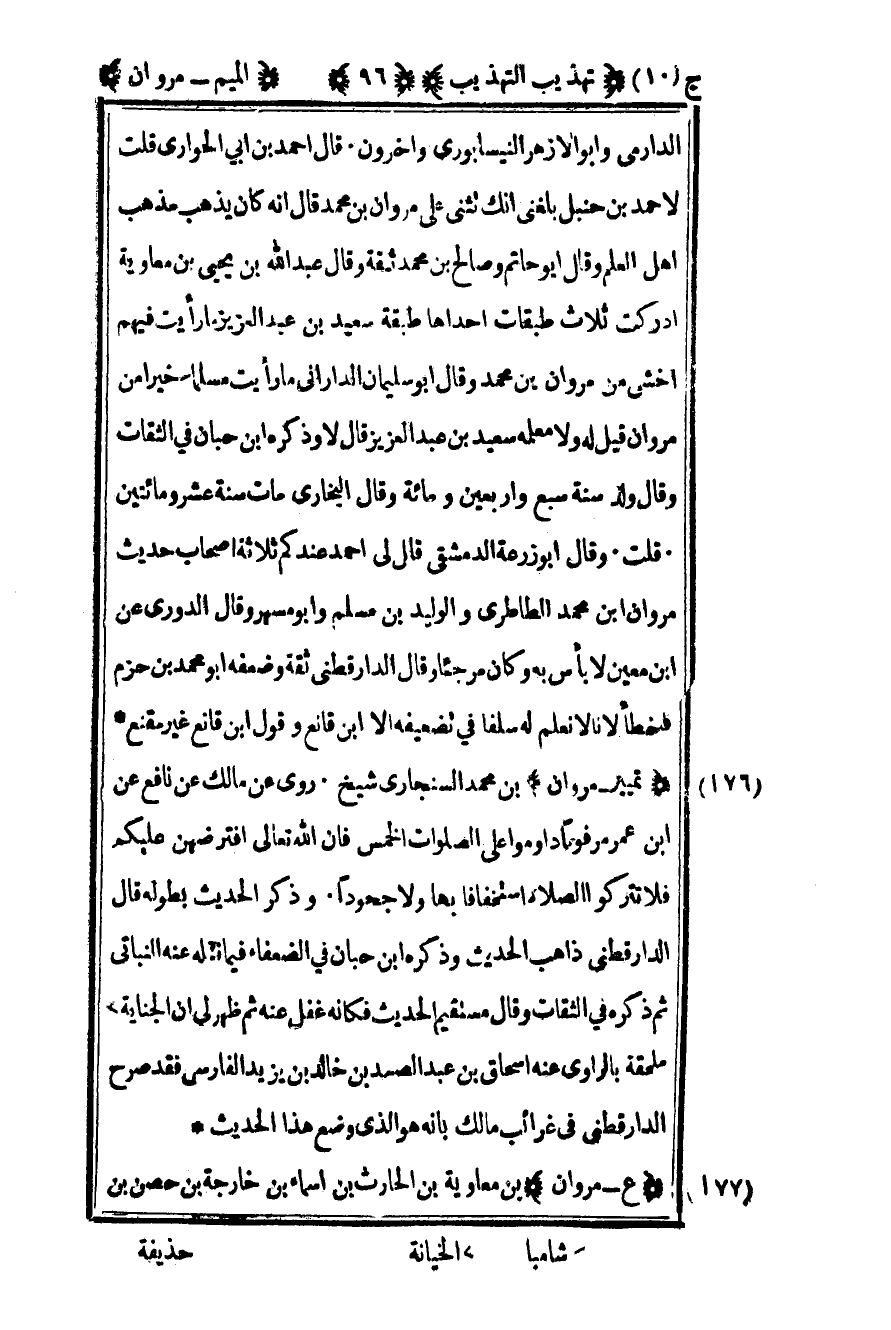 ج (١٠) ﴿ تهذيب التهذيب ﴾ ﴿ ٩٦ ﴾ ﴿ الميم ـ مروان ﴾
الدارمى وابوالازهرالنيسابورى وآخرون ٠ قال احمد بن ابي الحوارى قلت
لاحمد بن حنبل بلغنى انك تثنى على مروان بن محمد قال انه كان يذهب مذهب
اهل العلم وقال ابوحاتم وصالح بن محمد ثقة وقال عبدالله بن يحيى بن معاوية
ادركت ثلاث طبقات احداها طبقة سعيد بن عبد العزيز مارأيت فيهم
اخشى من مروان بن محمد وقال ابوسليمان الدارانى مارأيت مسلما ـ خيرا من
مروان قيل له ولا معلمه سعيد بن عبدالعزيز قال لا وذكره ابن حبان في الثقات
وقال ولد سنة سبع واربعين و مائة وقال البخارى مات سنة عشر ومائتين
٠ قلت ٠ وقال ابوزرعة الدمشقى قال لى احمد عندكم ثلاثة اصحاب حديث
مروان ابن محمد الطاطرى و الوليد بن مسلم وابومسهر وقال الدورى عن
ابن معين لا بأس به وكان مرجئا وقال الدارقطنى ثقة وضعفه ابو محمد بن حزم
فاخطأ لانا لا نعلم له سلفا في تضعيفه الا ابن قانع و قول ابن قانع غير مقنع *
(١٧٦) ﴿ تمييز ـ مروان ﴾ بن محمد السنجارى شيخ ٠ روى عن مالك عن نافع عن
ابن عمر مرفوعاً داوموا على الصلوات الخمس فان الله تعالى افترضهن عليكم
فلا تتركوا الصلاة استخفافا بها ولا جحوداً ٠ و ذكر الحديث بطوله قال
الدارقطني ذاهب الحديث وذكره ابن حبان في الضعفاء فيما نقله عنه النباتى
ثم ذكره في الثقات وقال مستقيم الحديث فكانه غفل عنه ثم ظهر لي ان الجناية ›
ملحقة بالراوى عنه اسحاق بن عبد الصمد بن خالد بن يزيد الفارسى فقد صرح
الدارقطني فى غرائب مالك بانه هو الذى وضع هذا الحديث *
(١٧٧) ﴿ ع ـ مروان ﴾ بن معاوية بن الحارث بن اسماء بن خارجة بن حصن بن
ـ شامبا › الخيانة حذيفة